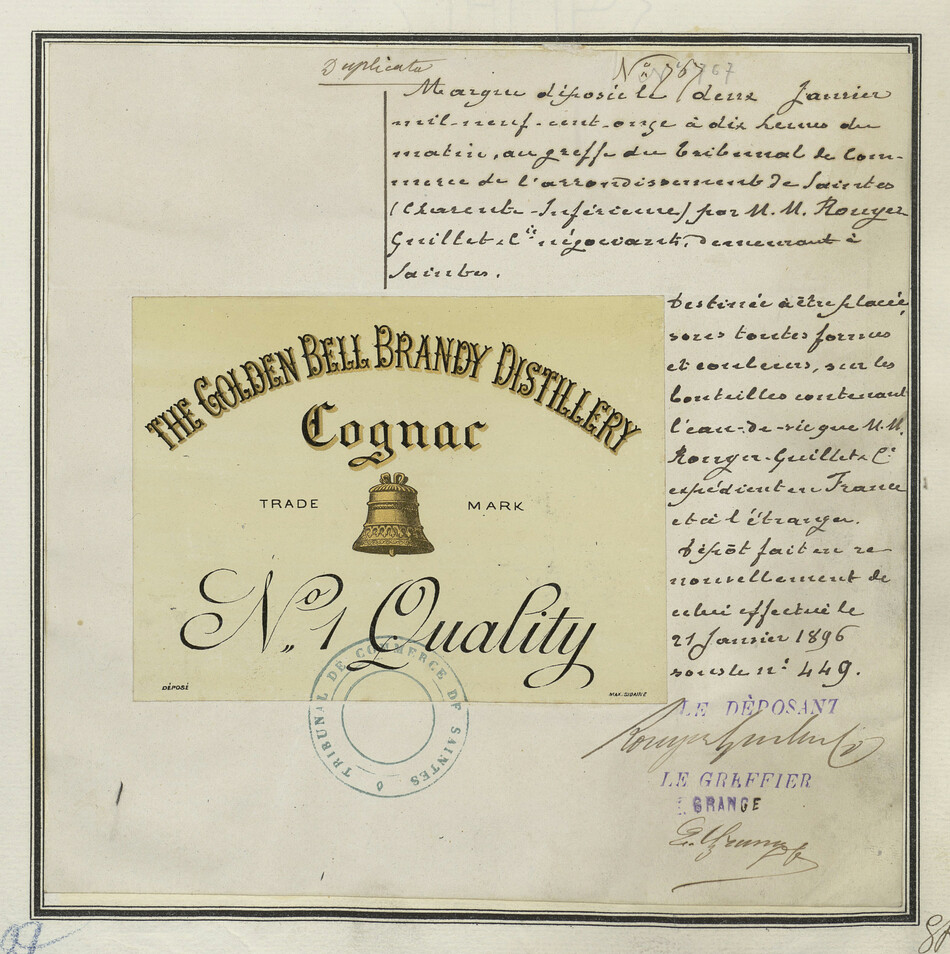 Duplicata
No 767 767
Marque déposée le deux Janvier
mil-neuf-cent-onze à dix heures du
matin, au greffe du Tribunal de Com-
merce de l'arrondissement de Saintes
(Charente-Inférieure) par M.M. Rouyer
Guillet & Cie négociants, demeurant à
Saintes.
Destinée à être placée,
sous toutes formes
et couleurs, sur les
bouteilles contenant
l'eau-de-vie que M.M.
Rouyer-Guillet & Cie
expédient en France
et à l'étranger.
Dépôt fait en re
nouvellement de
celui effectué le
21 Janvier 1896
sous le no 449.
THE GOLDEN BELL BRANDY DISTILLERY
Cognac
TRADE MARK
No 1 Quality
DÉPOSÉ
TRIBUNAL DE COMMERCE DE SAINTES
LE DÉPOSANT
Rouyer Guillet & Co
LE GREFFIER
E. GRANGE